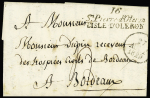 16
St Pierre d'Oleron
ISLE D'OLERON
A Monsieur
Monsieur Dupin receveur
des hospices civils de Bordeaux
A Bordeaux